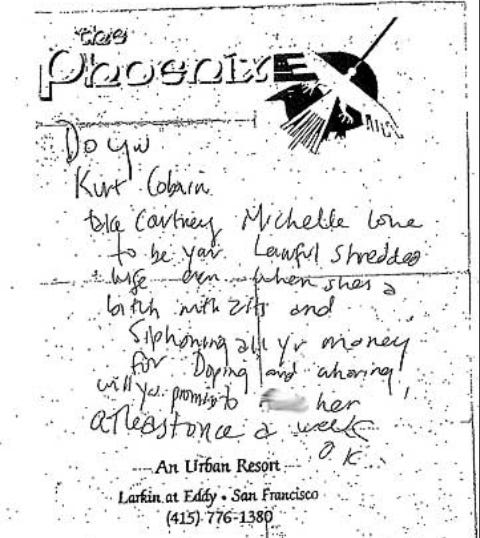 the
Phoenix
Do you
Kurt Cobain
take Courtney Michelle Love
to be your Lawful shredded
wife even when shes a
bitch with zits and
siphoning all yr money
for Doping and whoring
will you promise to her
atleastonce a week
OK
An Urban Resort
Larkin at Eddy • San Francisco
(415) 776-1380